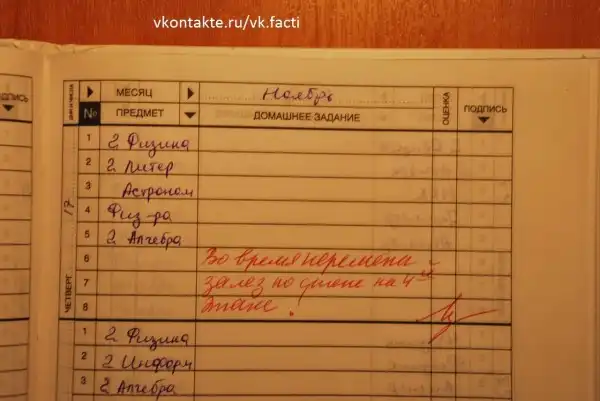 vkontakte.ru/vk.facti
МЕСЯЦ Ноябрь
№ ПРЕДМЕТ ДОМАШНЕЕ ЗАДАНИЕ ОЦЕНКА ПОДПИСЬ
1 2 Физика
2 2 Литер
3 Астроном
4 Физ-ра
5 2 Алгебра
6 Во время перемены
7 залез по стене на 4й
8 этаже.
ЧЕТВЕРГ 17
1 2 Физика
2 2 Информ
3 2 Алгебра